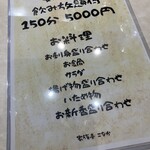 飲み放題付
150分 5000円
お料理
お刺身盛り合わせ
お鍋
サラダ
揚げ物盛り合わせ
いため物
お新香盛り合わせ